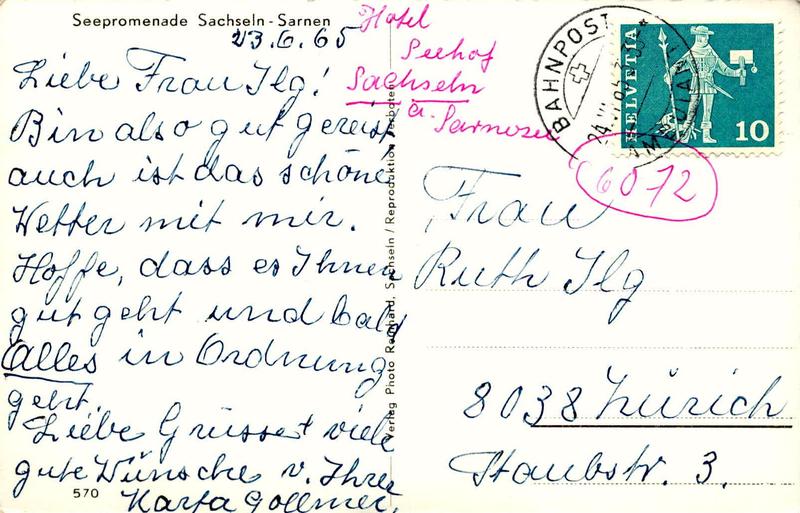 Seepromenade Sachseln - Sarnen
23.6.65
Liebe Frau Ilg!
Bin also gut gereist
auch ist das schöne
Wetter mit mir.
Hoffe, dass es Ihnen
gut geht und bald
Alles in Ordnung
geht.
Liebe Grüsse + viele
gute Wünsche v. Ihrer
570
Hotel
Seehof
Sachseln
a. Sarnersee
Verlag Photo Reinhard, Sachseln / Reproduktion verboten
BAHNPOST
AMBULANT
HELVETIA
10
6072
Frau
Ruth Ilg
8038 Zürich
Staubstr. 3.